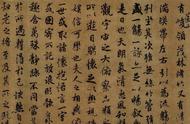 峻領茂林脩竹又有清
湍暎帶左右引以為流觴曲
列坐其次雖無絲竹管弦
盛一觴一詠亦足以暢敘
是日也天朗氣清惠風和
觀宇宙之大俯察品類之
所以遊目騁懷足以極視
娛信可樂也夫人之相與
一世或取諸懷抱悟言一
或因寄所託放浪形骸之
趣舍萬殊靜躁不同當
於所遇暫得於己怏然自
知老之將至及其所之